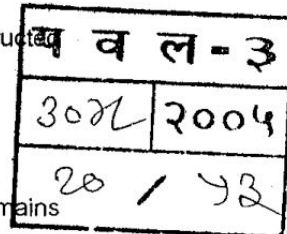 ucted
प व ल - ३
२००५
२० / ५३
mains